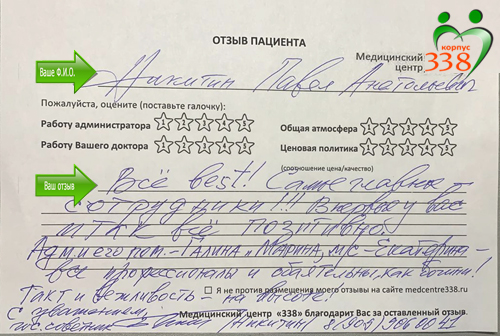 ОТЗЫВ ПАЦИЕНТА
корпус
Медицинский центр 338
Ваше Ф.И.О.
Никитин Павел Анатольевич
Пожалуйста, оцените (поставьте галочку):
Работу администратора
Общая атмосфера
Работу Вашего доктора
Ценовая политика
(соотношение цена/качество)
Ваш отзыв
Всё best! Самые главные
сотрудники!!! Впервые у вас
и так всё позитивно.
- Галина и Марина, м/с - Екатерина -
все профессионалы и обаятельны, как богини!
Такт и вежливость - на высоте!
Я не против размещения моего отзыва на сайте medcentre338.ru
С уважением,
Медицинский центр «338» благодарит Вас за оставленный отзыв.
(Никитин)